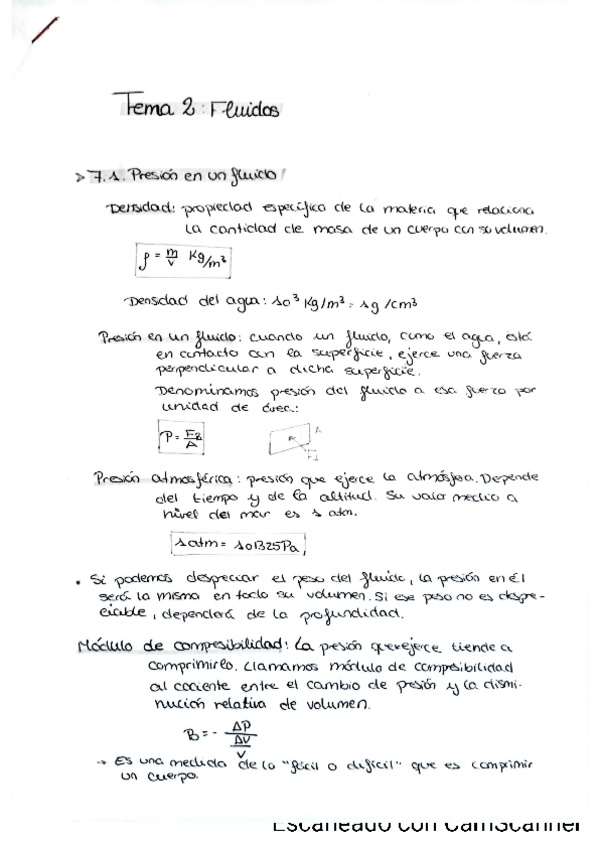 Tema 2: Fluidos
> 7.1. Presión en un fluido
Densidad: propiedad específica de la materia que relaciona
la cantidad de masa de un cuerpo con su volumen.
ρ = m/V Kg/m³
Densidad del agua: 10³ Kg/m³ = 1g/cm³
Presión en un fluido: cuando un fluido, como el agua, está
en contacto con la superficie, ejerce una fuerza
perpendicular a dicha superficie.
Denominamos presión del fluido a esa fuerza por
unidad de área:
P = F⊥/A
A
F⊥
Presión atmosférica: presión que ejerce la atmósfera. Depende
del tiempo y de la altitud. Su valor medio a
nivel del mar es 1 atm.
1atm = 101325Pa
• Si podemos despreciar el peso del fluido, la presión en él
será la misma en todo su volumen. Si ese peso no es despre-
ciable, dependerá de la profundidad.
Módulo de compesibilidad: La presión que ejerce tiende a
comprimirlo. Llamamos módulo de compesibilidad
al cociente entre el cambio de presión y la dismi-
nución relativa de volumen.
B = - ΔP/(ΔV/V)
→ Es una medida de lo "fácil o difícil" que es comprimir
un cuerpo.
Escaneado con CamScanner